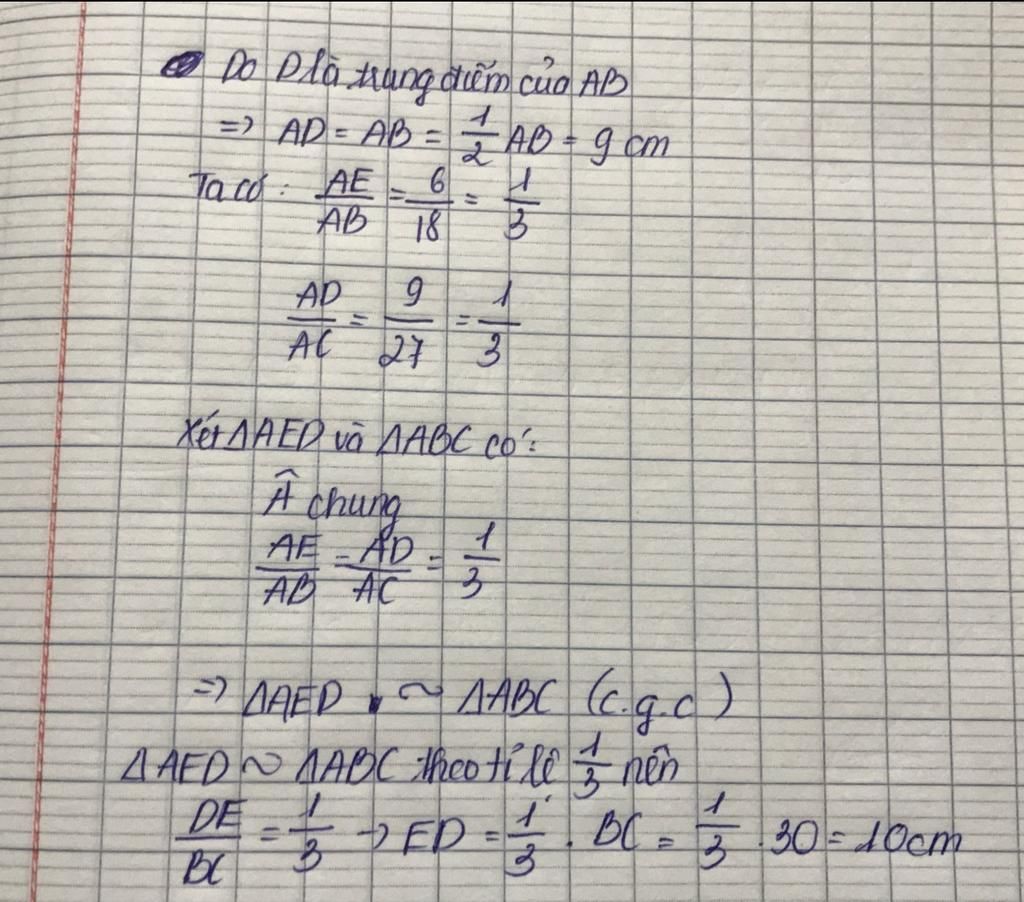 Do D là trung điểm của AB
=> AD = AB = 1/2 AB = 9 cm
Ta có: AE/AB = 6/18 = 1/3
AD/AC = 9/27 = 1/3
Xét ΔAED và ΔABC có:
Â chung
AE/AB = AD/AC = 1/3
=> ΔAED ~ ΔABC (c.g.c)
ΔAED ~ ΔABC theo tỉ lệ 1/3 nên
DE/BC = 1/3 → ED = 1/3 . BC = 1/3 . 30 = 10cm